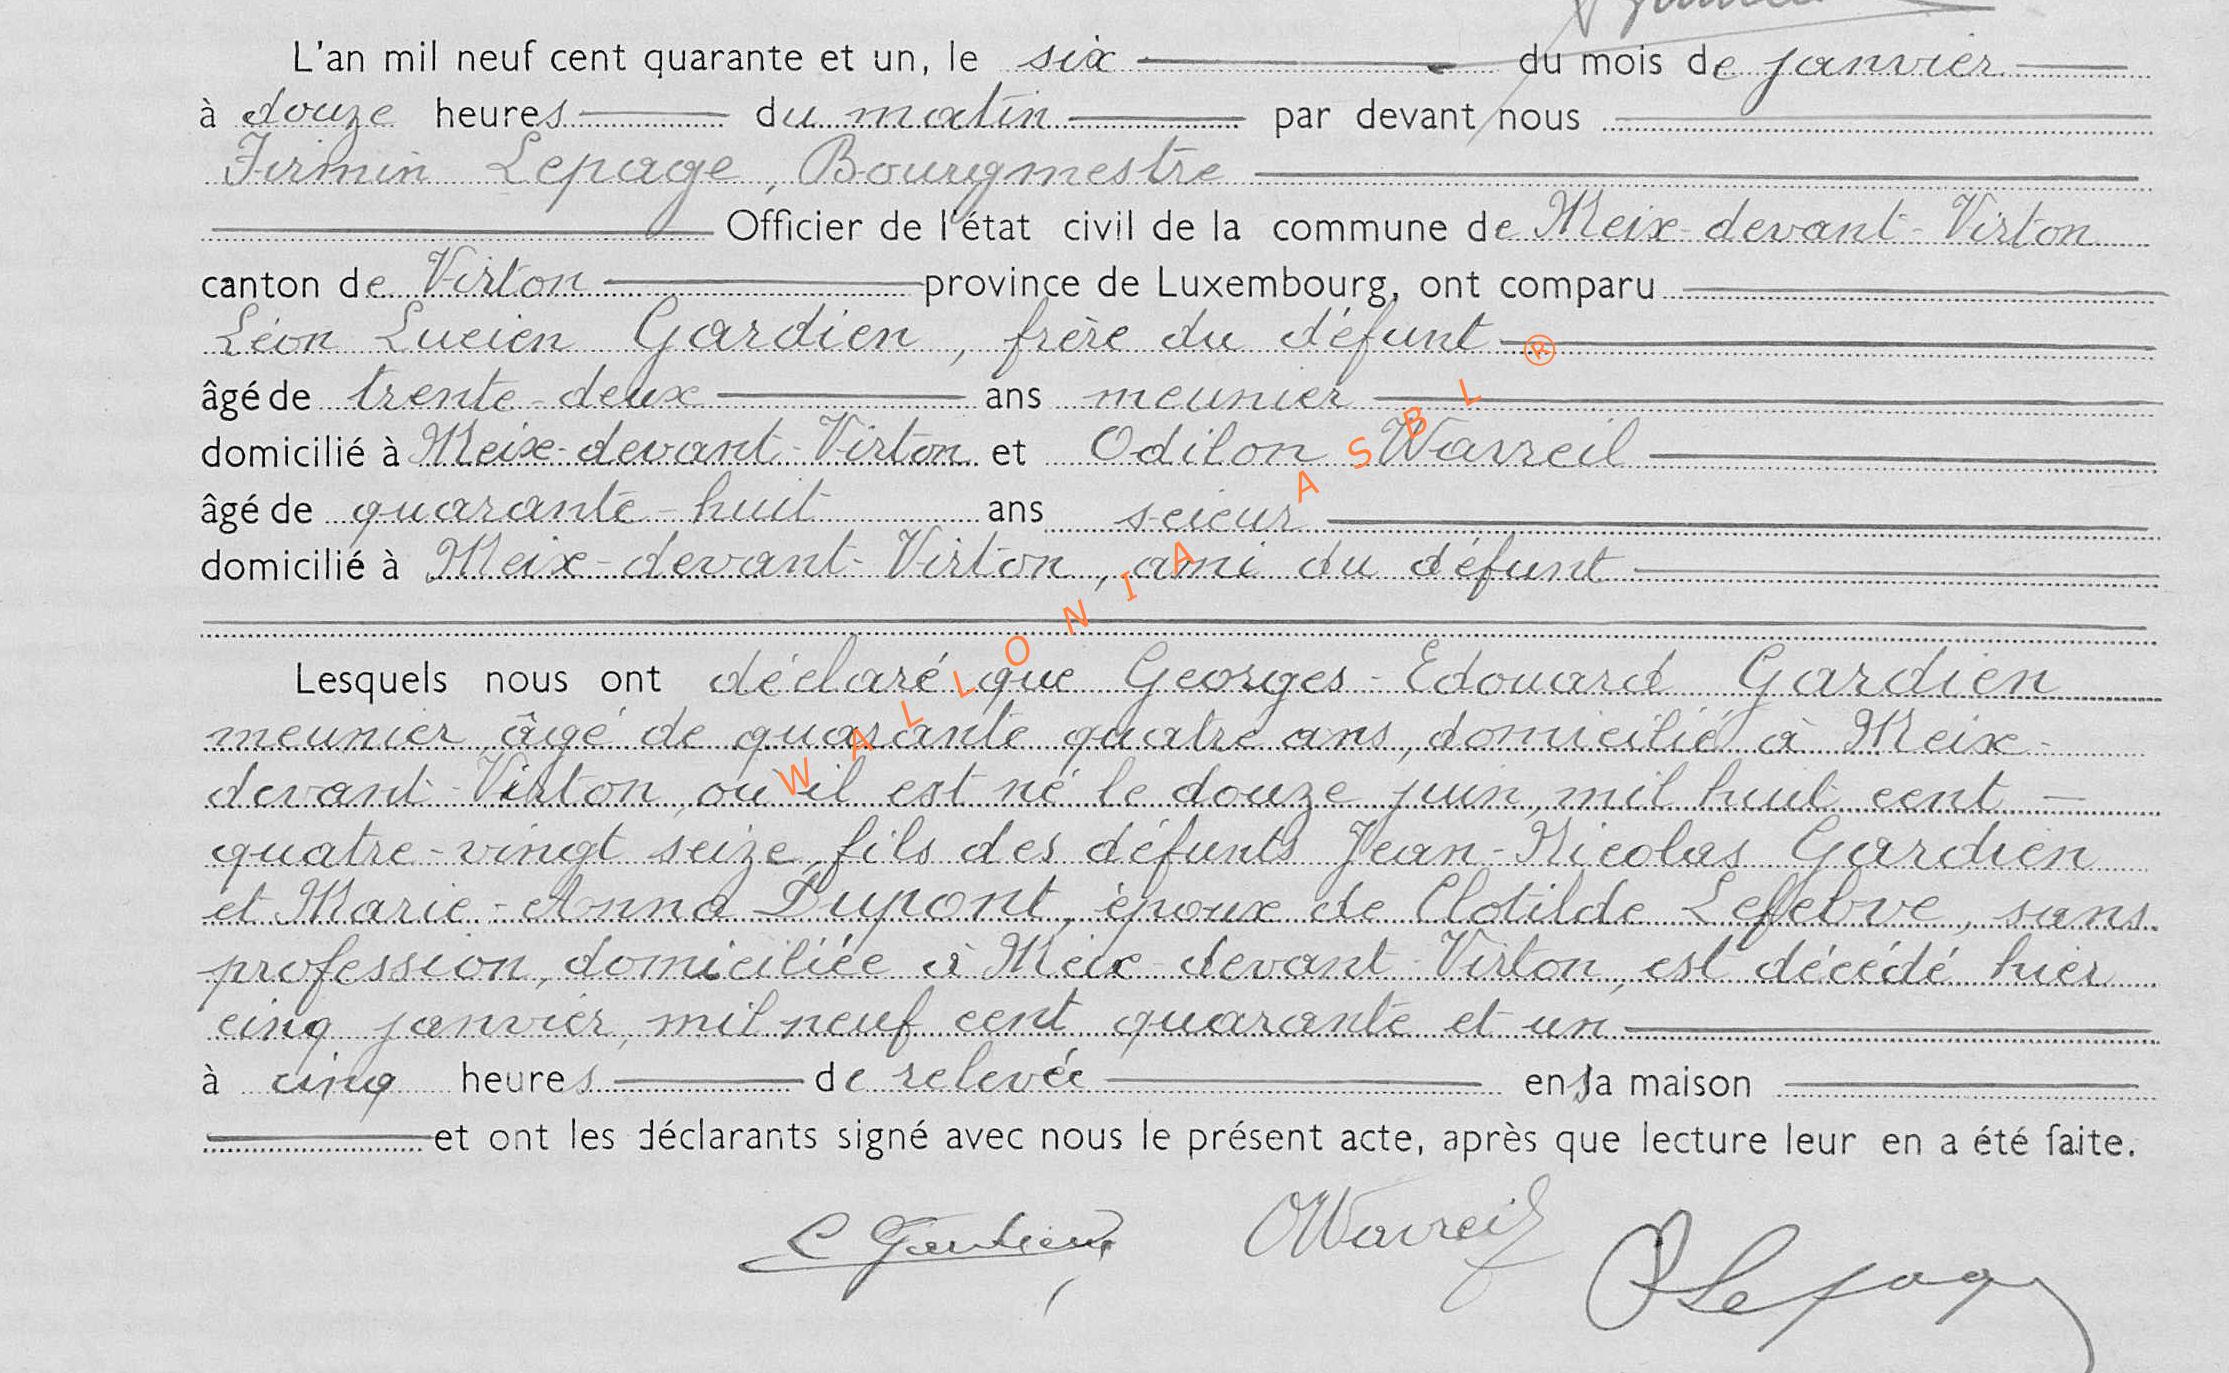 L'an mil neuf cent quarante et un, le six du mois de janvier
à douze heures du matin par devant nous
Firmin Lepage, Bourgmestre
Officier de l'état civil de la commune de Meix-devant-Virton
canton de Virton province de Luxembourg, ont comparu
Léon Lucien Gardien, frère du défunt
âgé de trente-deux ans meunier
domicilié à Meix-devant-Virton et Odilon Wavreil
âgé de quarante-huit ans scieur
domicilié à Meix-devant-Virton, ami du défunt
Lesquels nous ont déclaré que Georges-Edouard Gardien
meunier, âgé de quarante quatre ans, domicilié à Meix-
devant-Virton, où il est né le douze juin, mil huit cent
quatre-vingt seize, fils des défunts Jean-Nicolas Gardien
et Marie-Anna Dupont, époux de Clotilde Lefebvre, sans
profession, domiciliée à Meix-devant-Virton, est décédé hier
cinq janvier, mil neuf cent quarante et un
à cinq heures de relevée en sa maison
et ont les déclarants signé avec nous le présent acte, après que lecture leur en a été faite.
L Gardien OWavreil FLepage
WALLONIA ASBL ®